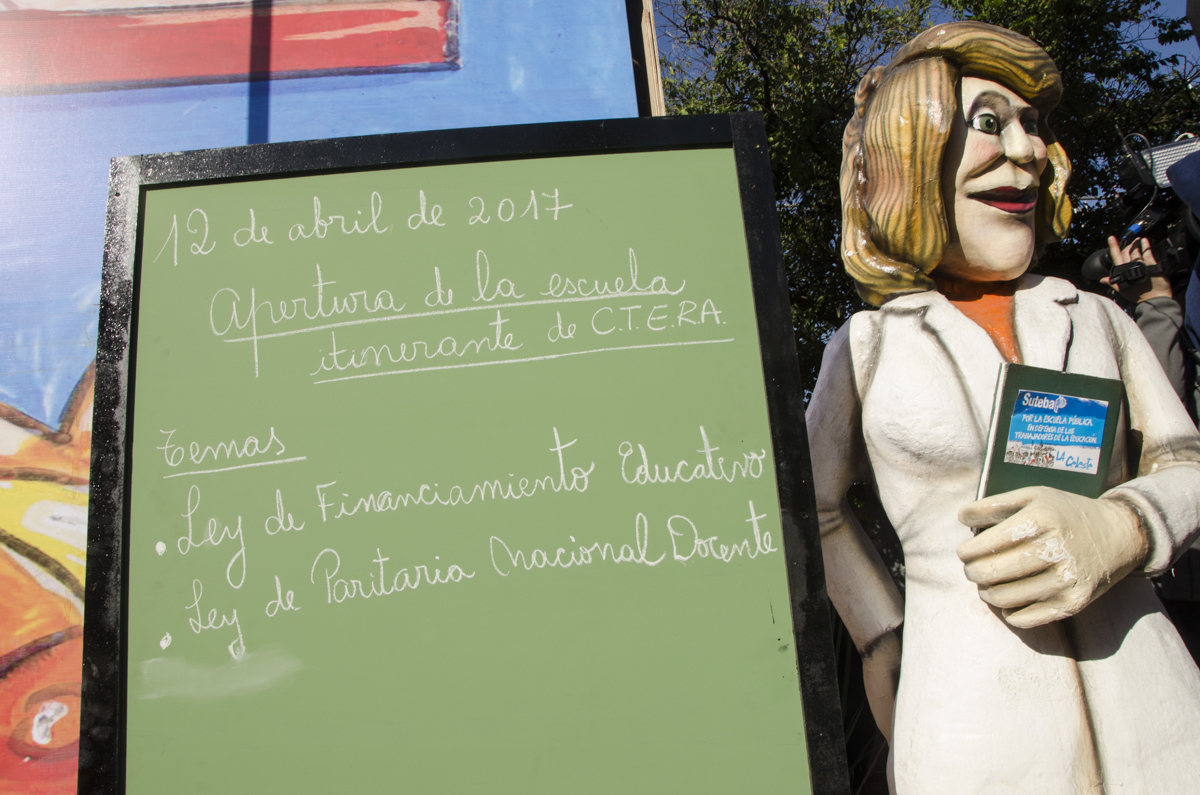 12 de abril de 2017
Apertura de la escuela
itinerante de C.T.E.R.A.
Temas
. Ley de Financiamiento Educativo
. Ley de Paritaria Nacional Docente
Suteba
POR LA ESCUELA PÚBLICA
EN DEFENSA DE LOS
TRABAJADORES DE LA EDUCACIÓN
LA Celeste